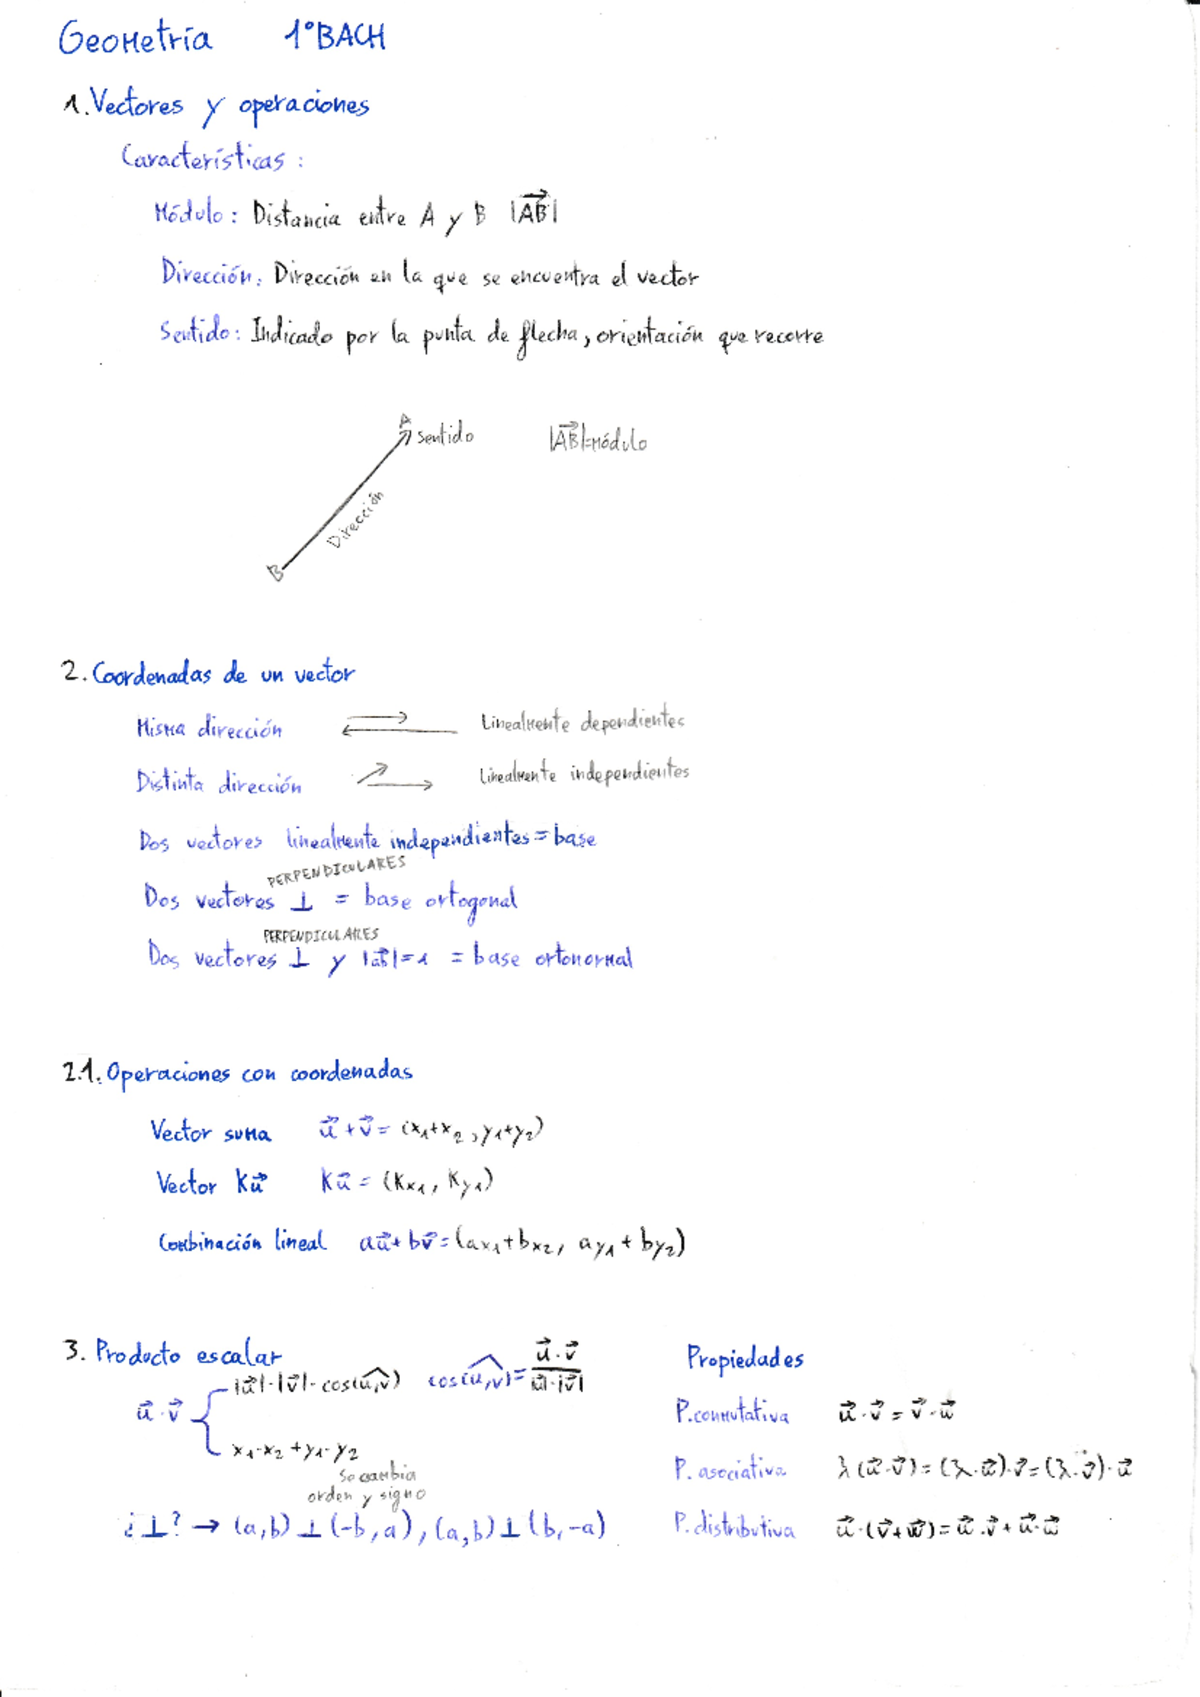 Geometría 1ºBACH
1. Vectores y operaciones
Características:
Módulo: Distancia entre A y B |AB⃗|
Dirección: Dirección en la que se encuentra el vector
Sentido: Indicado por la punta de flecha, orientación que recorre
A
sentido |AB⃗|=módulo
Dirección
B
2. Coordenadas de un vector
Misma dirección Linealmente dependientes
Distinta dirección Linealmente independientes
Dos vectores linealmente independientes = base
PERPENDICULARES
Dos vectores ⊥ = base ortogonal
PERPENDICULARES
Dos vectores ⊥ y |ab⃗|=1 = base ortonormal
2.1. Operaciones con coordenadas
Vector suma u⃗+v⃗=(x₁+x₂, y₁+y₂)
Vector Ku⃗ Ku⃗ = (Kx₁, Ky₁)
Combinación lineal au⃗+bv⃗=(ax₁+bx₂, ay₁+by₂)
3. Producto escalar
u⃗·v⃗ { |u⃗|·|v⃗|·cos(u,v) cos(u,v)= u⃗·v⃗ / |u⃗|·|v⃗|
x₁·x₂+y₁·y₂
Se cambia
orden y signo
¿⊥? → (a,b)⊥(-b,a), (a,b)⊥(b,-a)
Propiedades
P. conmutativa u⃗·v⃗=v⃗·u⃗
P. asociativa λ(u⃗·v⃗)=(λ·u⃗)·v⃗=(λ·v⃗)·u⃗
P. distributiva u⃗·(v⃗+w⃗)=u⃗·v⃗+u⃗·w⃗